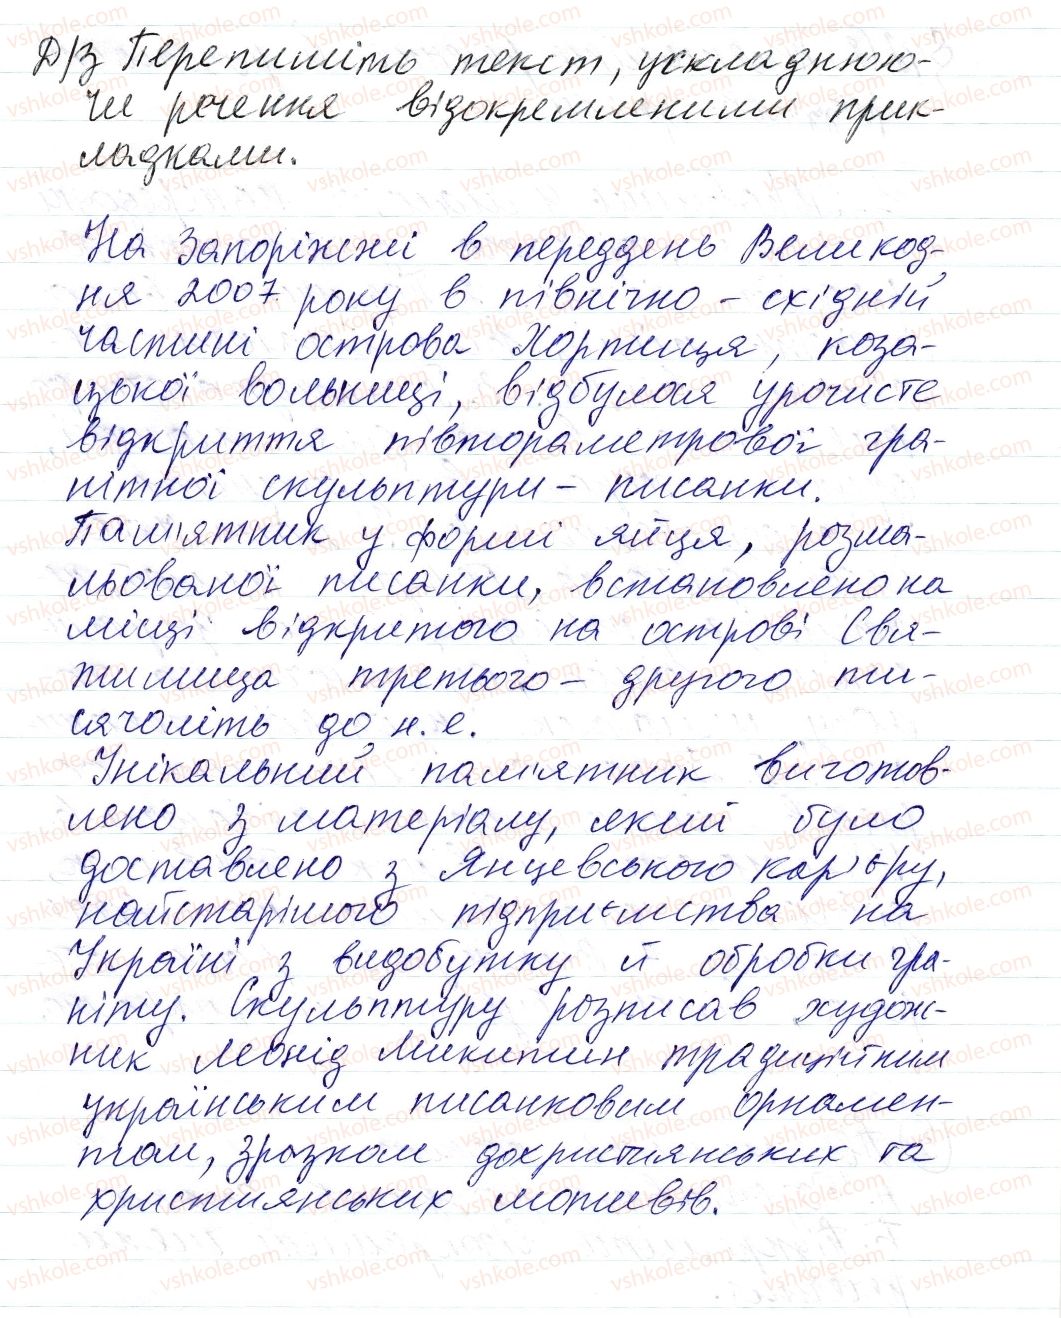 Д/З Перепишіть текст, ускладнюю-
чи речення відокремленими прик-
ладками.
На Запоріжжі в переддень Великод-
ня 2007 року в північно-східній
частині острова Хортиця, коза-
цької вольниці, відбулося урочисте
відкриття півтораметрової гра-
нітної скульптури-писанки.
Пам'ятник у формі яйця, розма-
льованої писанки, встановлено на
місці відкритого на острові Свя-
тилища третього-другого ти-
сячоліть до н.е.
Унікальний пам'ятник виготов-
лено з матеріалу, який було
доставлено з Янцевського кар'єру,
найстарішого підприємства на
Україні з видобутку й обробки гра-
ніту. Скульптуру розписав худож-
ник Леонід Микитин традиційним
українським писанковим орнамен-
том, зразком дохристиянських та
християнських мотивів.